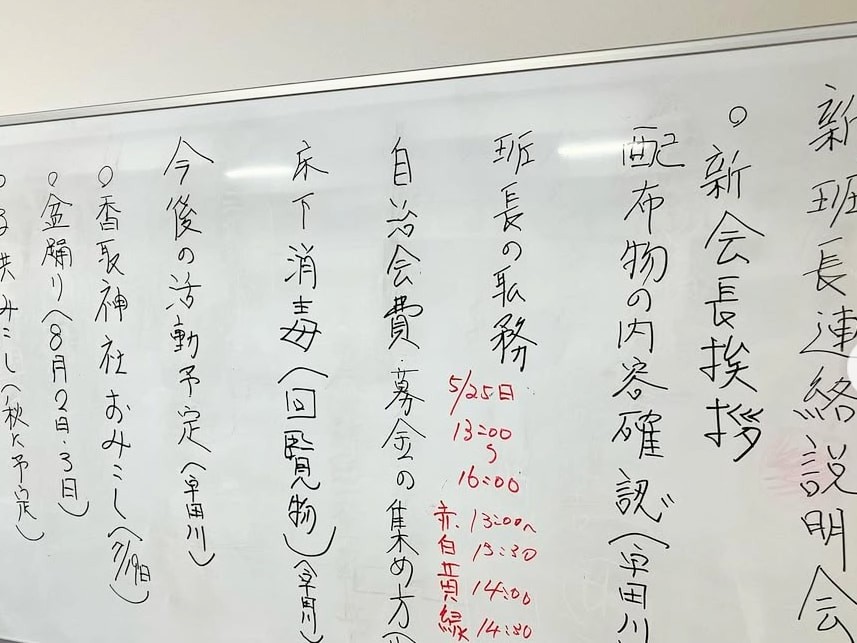 新班長連絡説明会
○新会長挨拶
配布物の内容確認(早田川
班長の職務
5/25日
13:00
〜
16:00
赤 13:00〜
白 13:30
黄 14:00
緑 14:30
自治会費・募金の集め方(
床下消毒(回覧物)(早田川)
今後の活動予定(早田川)
○香取神社おみこし(7/19日)
○盆踊り(8月2日・3日)
みこし(秋に予定)